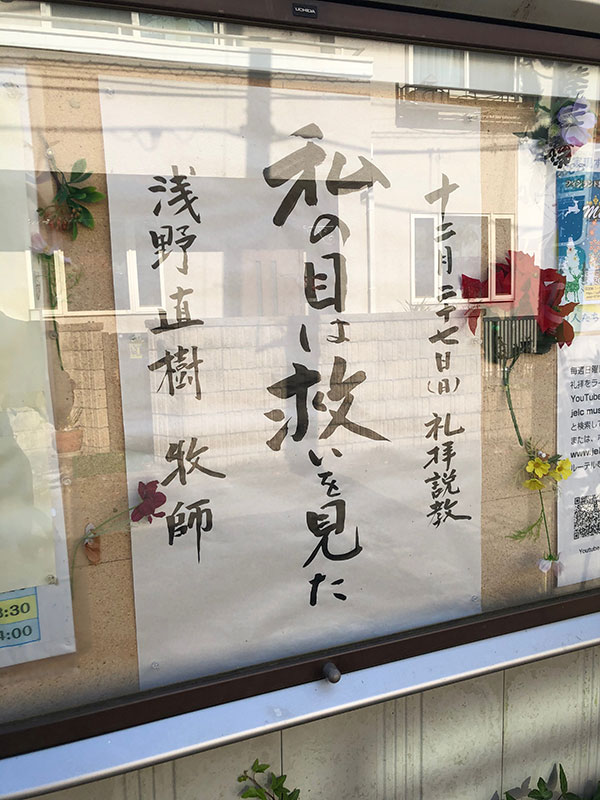 UCHIDA
十二月二十七日(日)礼拝説教
私の目は救いを見た
浅野直樹 牧師
3:30
4:00
人たち
毎週日曜
礼拝をラ
YouTube
jelc mus
と検索して
または、ホ
www.jel
ルーテル
Youtube